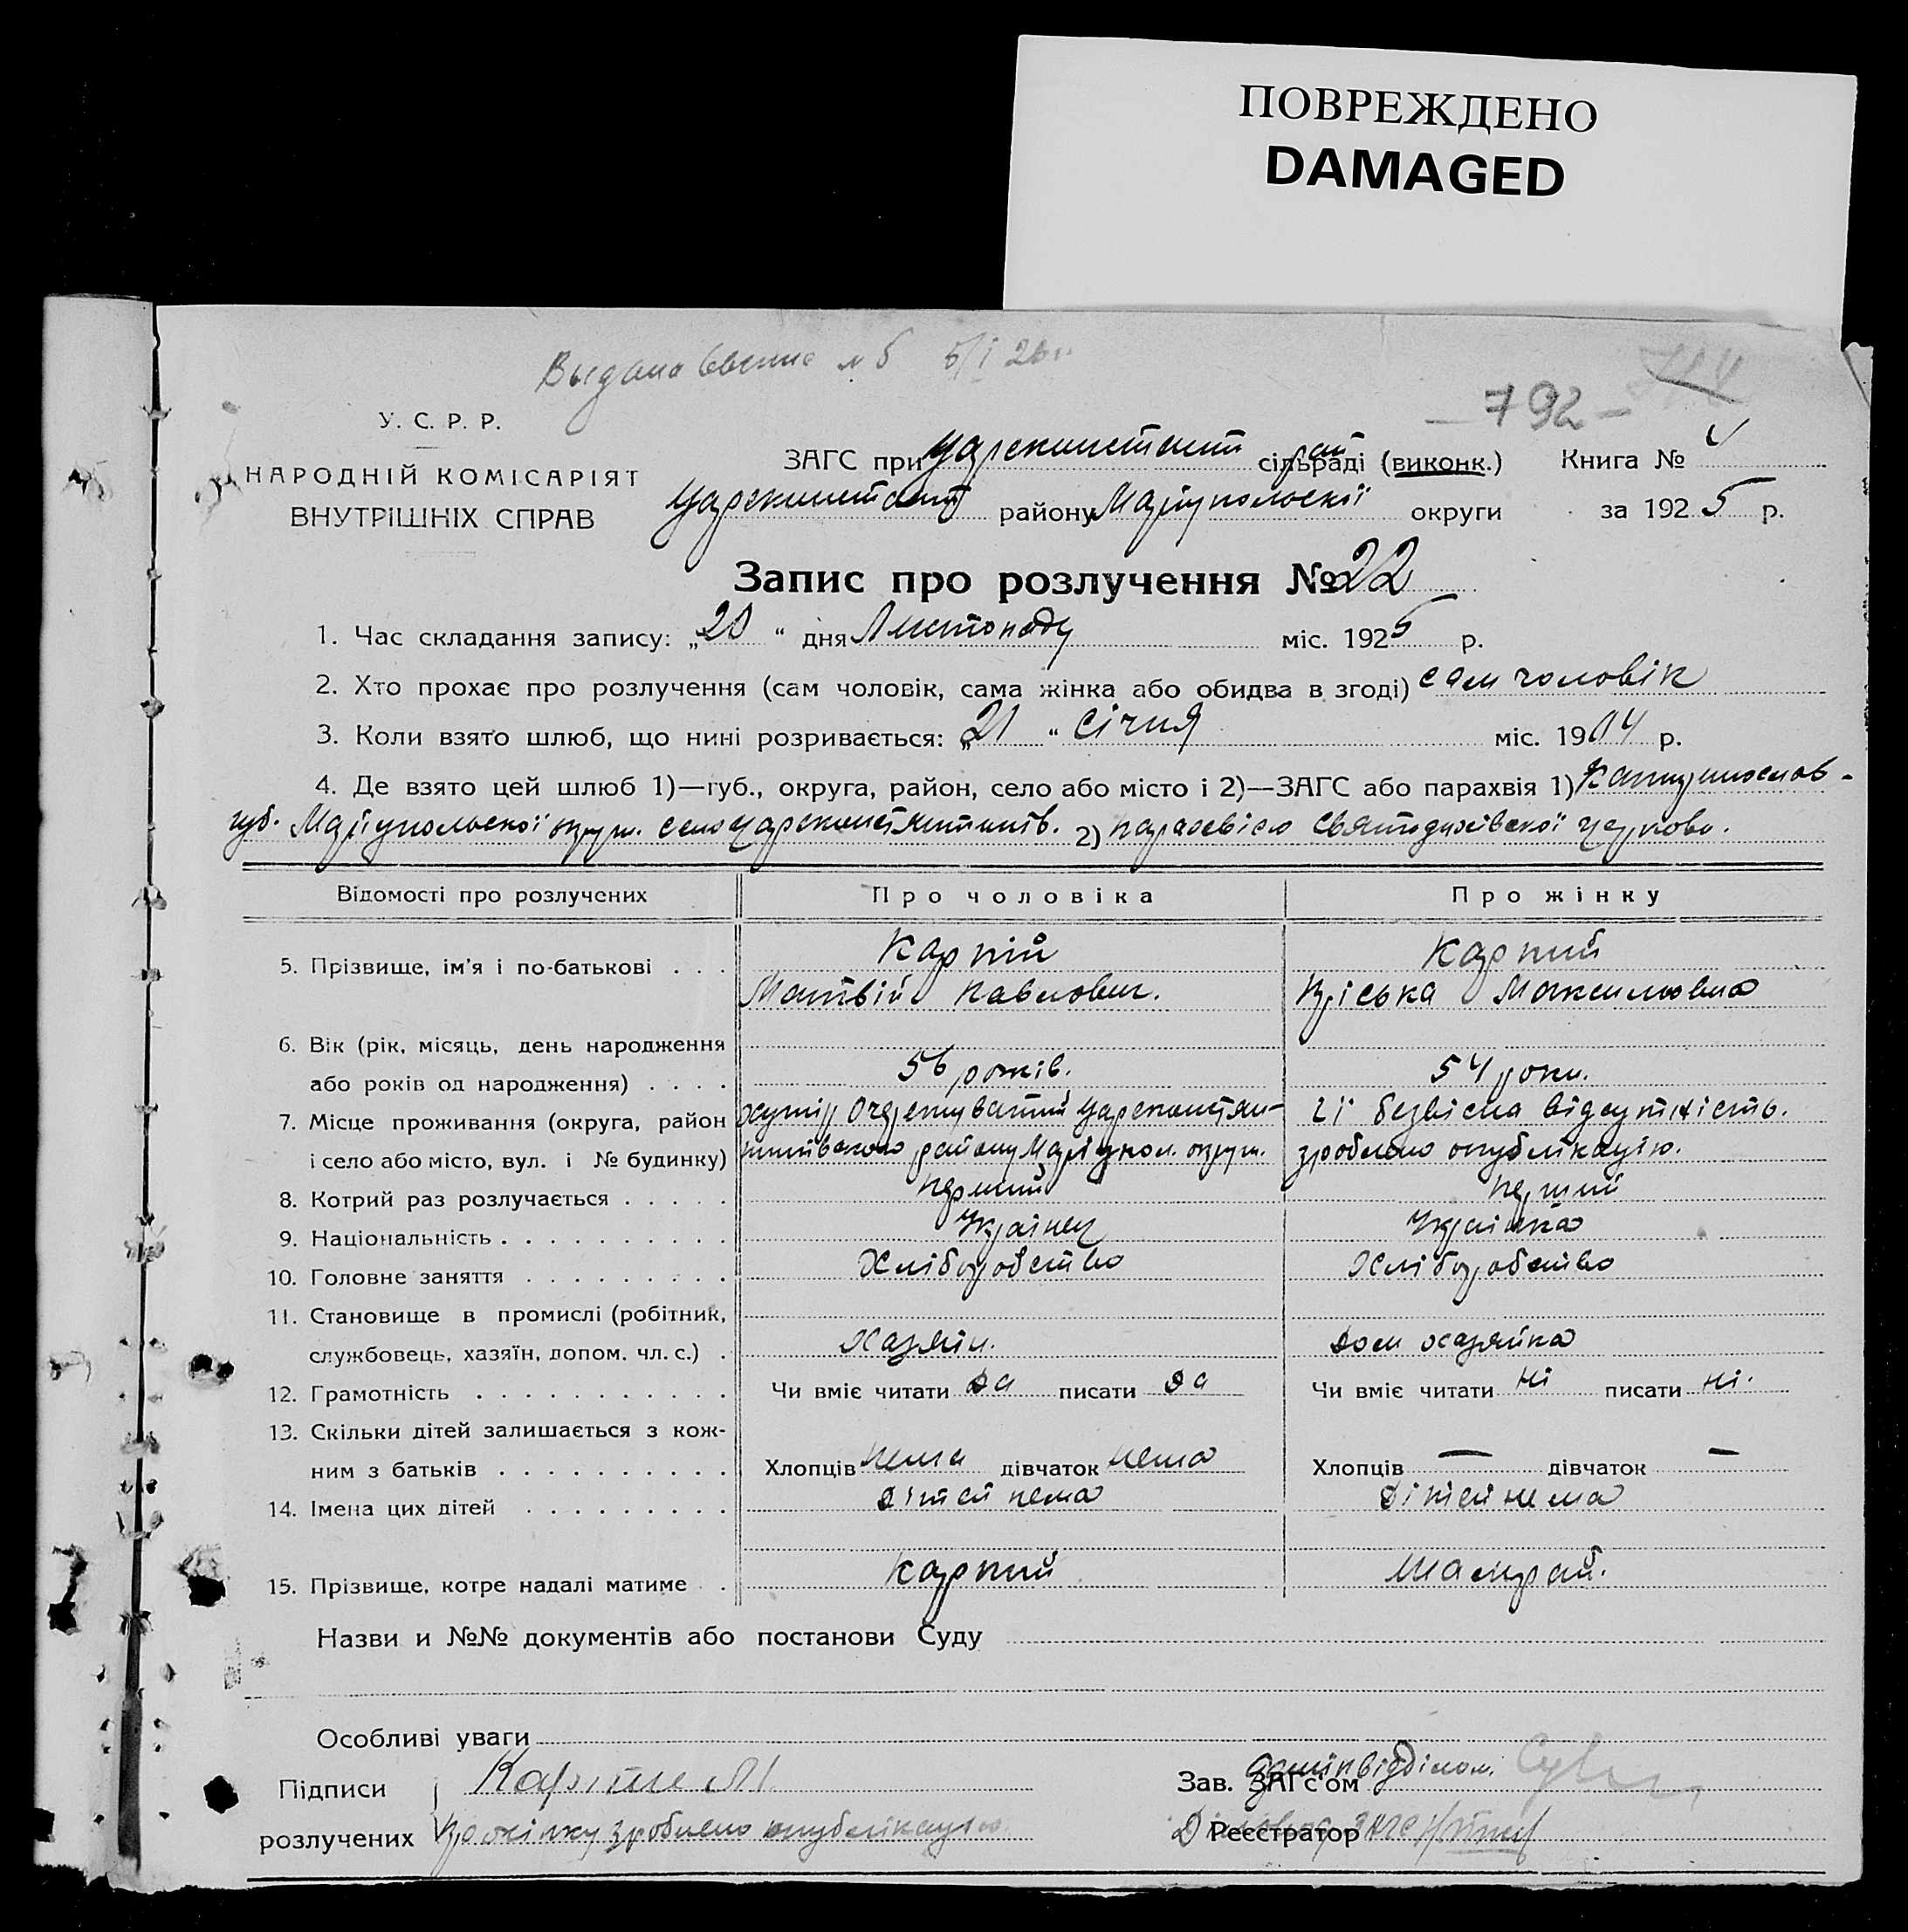 ПОВРЕЖДЕНО
DAMAGED
Выдано № 5 5/I 26 г.
— 792 —
У. С. Р. Р.
НАРОДНІЙ КОМІСАРІЯТ
ВНУТРІШНІХ СПРАВ
ЗАГС при Цареконстант рай сільраді (виконк.) Книга № 4
Цареконстант району Маріупольської округи за 1925 р.
Запис про розлучення № 22
1. Час складання запису: „20“ дня Листопаду міс. 1925 р.
2. Хто прохає про розлучення (сам чоловік, сама жінка або обидва в згоді) сам чоловік
3. Коли взято шлюб, що нині розривається: „21“ січня міс. 1914 р.
4. Де взято цей шлюб 1)—губ., округа, район, село або місто і 2)—ЗАГС або парахвія 1)
губ. Маріупольскої округ. село 2) парахвією Святодухівскої церкови.
Відомості про розлучених Про чоловіка Про жінку
5. Прізвище, ім'я і по-батькові . . . Карпій Карпий
Матвій Павлович. Пріська Максимовна
6. Вік (рік, місяць, день народження
або років од народження) . . . . 56 років. 54 роки.
7. Місце проживання (округа, район хутір її безвісна відсутність.
і село або місто, вул. і № будинку) району Маріупол. округ. зроблено опублікацію.
8. Котрий раз розлучається . . . . . перший перший
9. Національність . . . . . . . . . . Українец Українка
10. Головне заняття . . . . . . . . . Хліборобство Хліборобство
11. Становище в промислі (робітник,
службовець, хазяїн, допом. чл. с.) . Хазяїн. Дом хазяйка
12. Грамотність . . . . . . . . . . . Чи вміє читати да писати да Чи вміє читати ні писати ні.
13. Скільки дітей залишається з кож-
ним з батьків . . . . . . . . . . Хлопців нема дівчаток нема Хлопців — дівчаток —
14. Імена цих дітей . . . . . . . . . Дітей нема Дітей нема
15. Прізвище, котре надалі матиме . . Карпий Шамрай.
Назви и №№ документів або постанови Суду
Особливі уваги
Підписи Зав. ЗАГС'ом Адмінвідділом.
розлучених Про жінку зроблено опублікацію Реєстратор